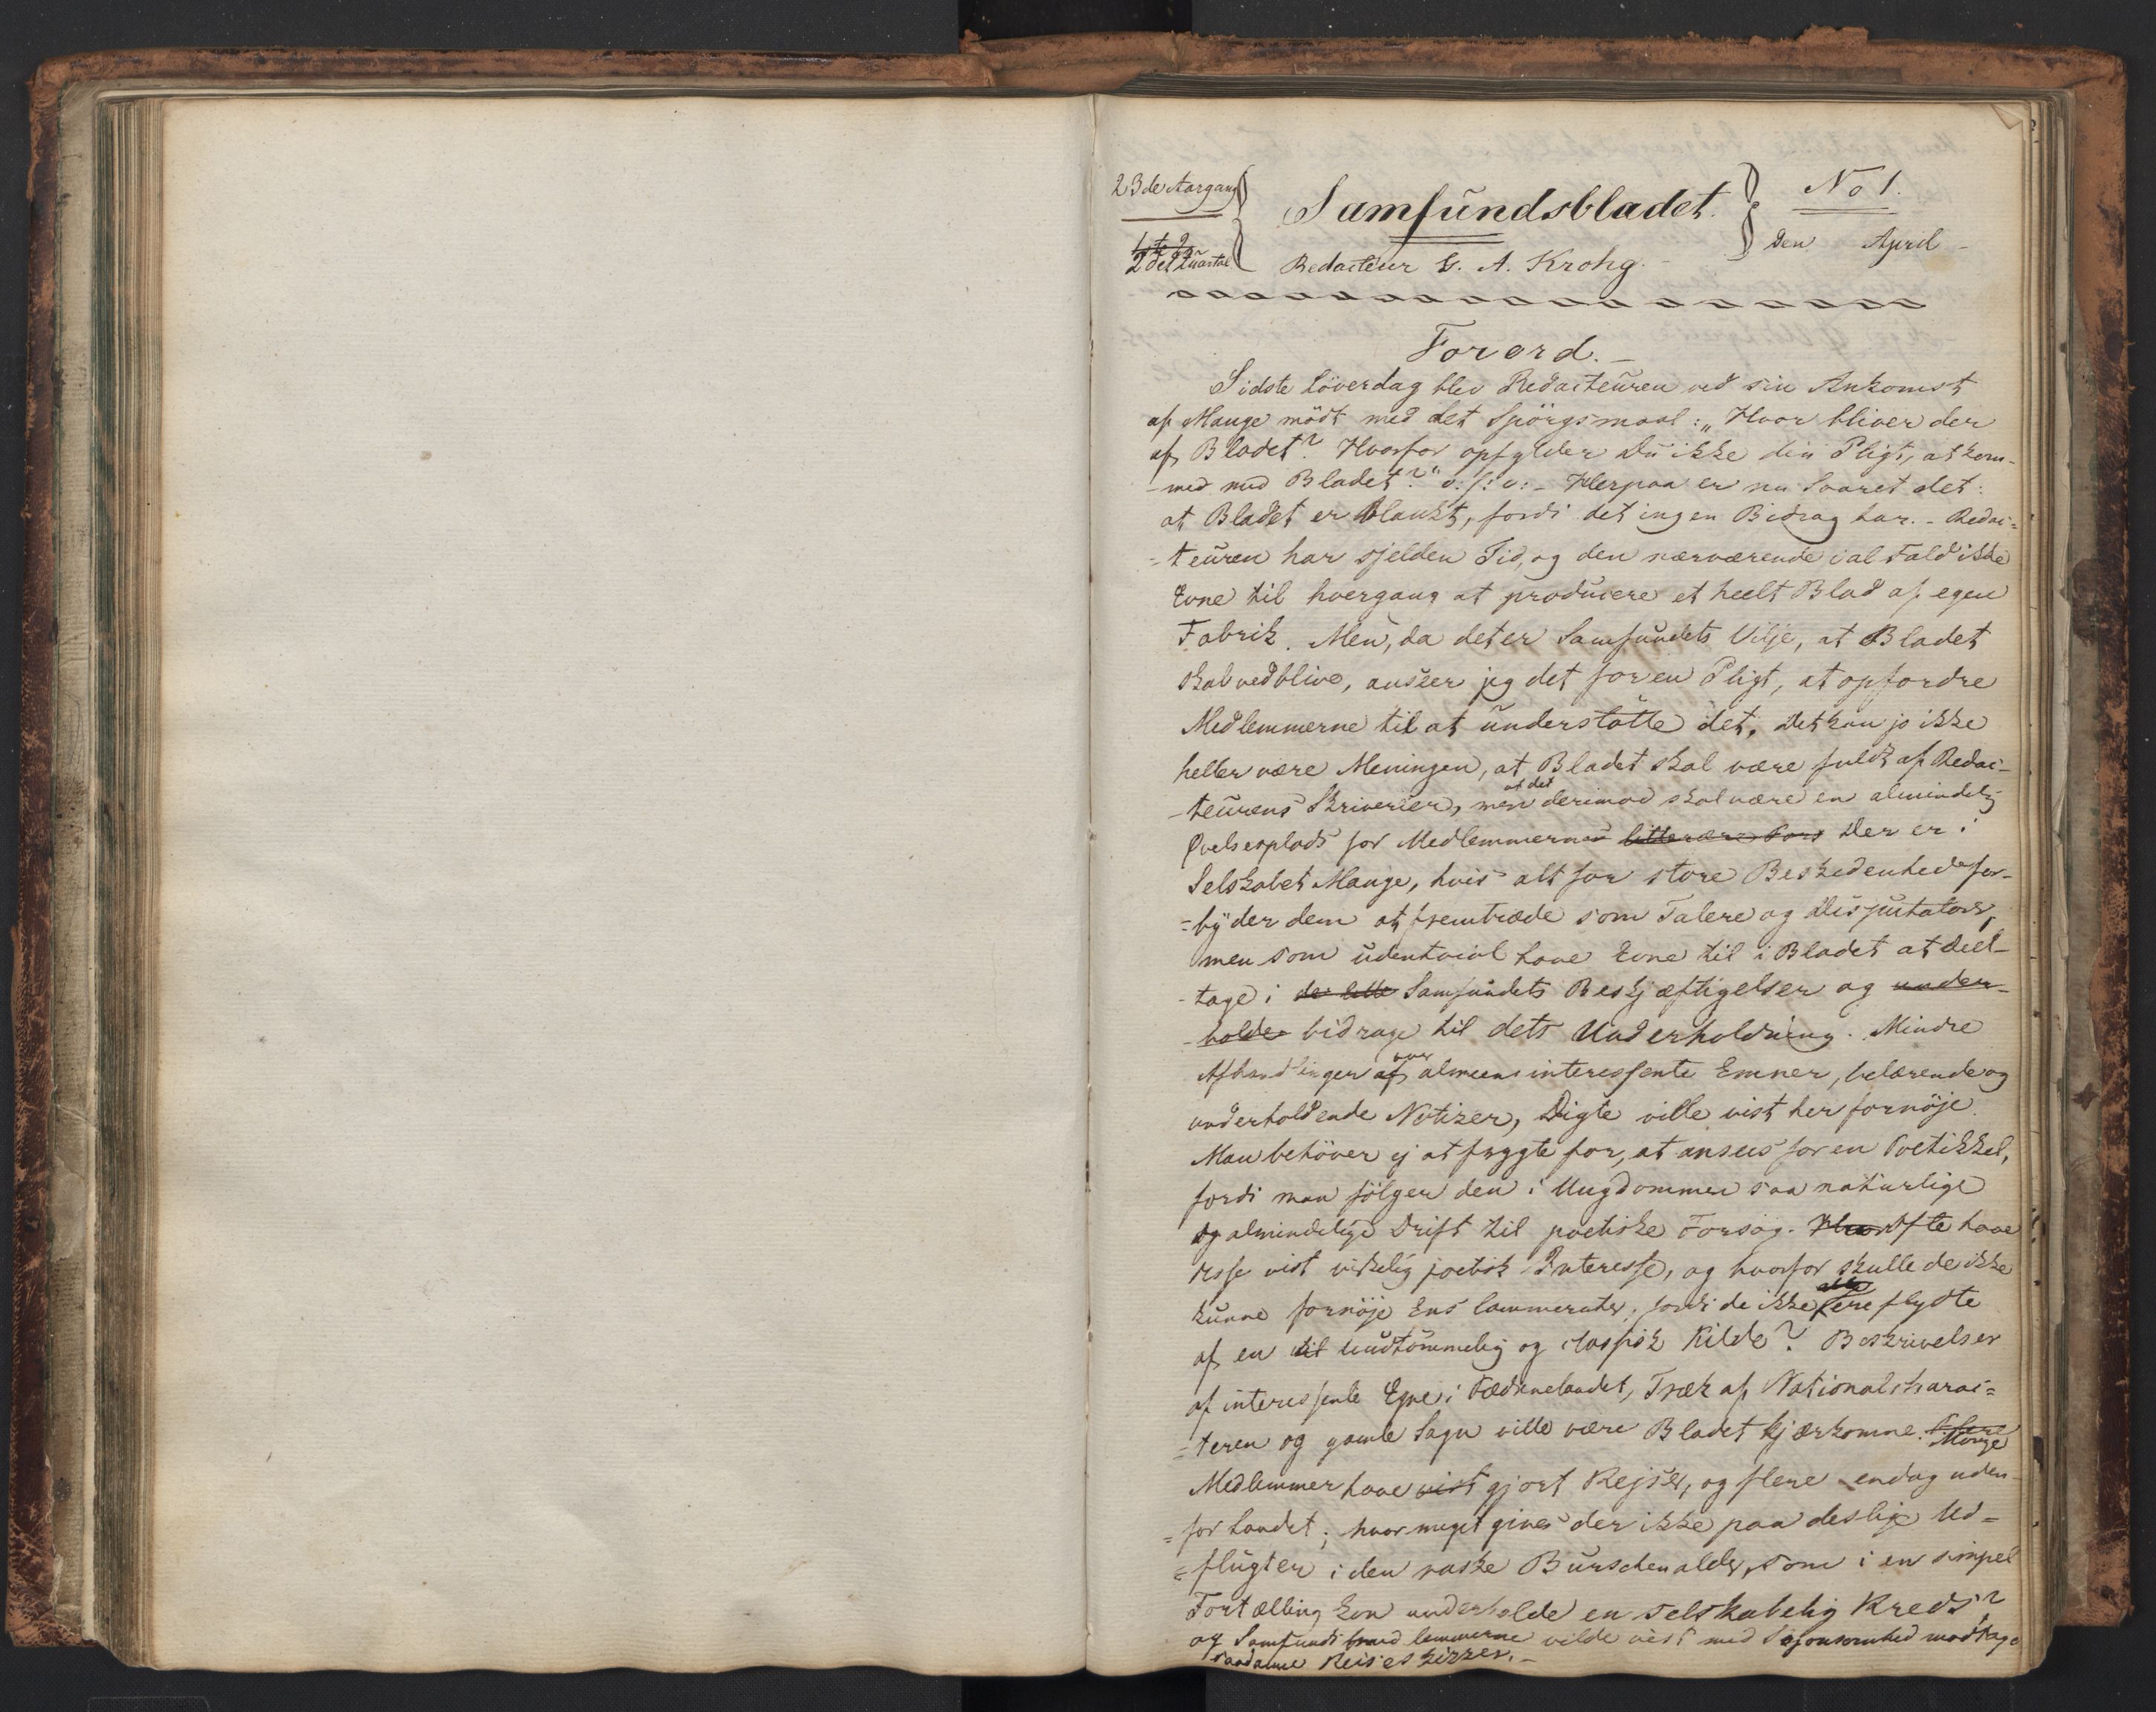 23de Aargang
Samfundsbladet.
No 1.
1ste
2det Quartal
Redacteur G. A. Krohg.
Den April
Forord.
Sidste Löverdag blev Redacteuren ved sin Ankomst
af Mange mödt med det Spörgsmaal: „Hvor bliver der
af Bladet? Hvorfor opfylder Du ikke din Pligt, at kom-
-me med Bladet?" o: s: v: - Herpaa er nu Svaret det:
at Bladet er blankt, fordi det ingen Bidrag har. - Redac=
=teuren har sjelden Tid, og den nærværende ialfald ikke
Evne til hvergang at producere et heelt Blad af egen
Fabrik. Men, da det er Samfundets Vilje, at Bladet
skal vedblive, anseer jeg det for en Pligt, at opfordre
Medlemmerne til at understötte det. Det kan jo ikke
heller være Meningen, at Bladet skal være fuldt af Redac-
-teurens Skriverier, men at det derimod skal være en almindelig
Øvelsesplads for Medlemmerne litterære Der er i
Selskabet Mange, hvis alt for store Beskedenhed for-
=byder dem at fremtræde som Talere og Disputatorer,
men som udentvivl have Evne til i Bladet at deel-
-tage i det lille Samfundets Beskjæftigelser og under-
-holde bidrage til dets Underholdning. Mindre
Afhandlinger af over almeen interessente Emner, belærende og
underholdende Notizer, Digte ville vist her fornöje.
Man behöver ej at frygte for, at ansees for en Poetikkel,
fordi man fölger den i Ungdommen saa naturlige
og almindelige Drift til poetiske Forsög. Ofte have
disse vist virkelig poetisk Interesse, og hvorfor skulle de ikke
kunne fornöje Ens Cammerater, fordi de ikke ere flydte
af en uudtömmelig og classisk Kilde? Beskrivelser
af interessente Egne i Fædrenelandet, Træk af Nationalcharac=
=teren og gamle Sagn ville være Bladet kjærkomne. Flere Mange
Medlemmer have vist gjort Rejser, og flere endog uden-
=for Landet; hvor meget gives der ikke paa deslige Ud=
=flugter i den raske Burschenalder, som i en simpel
Fortælling kan underholde en selskabelig Kreds?
og Samfundsmedlemmerne vilde vist med Skjönsomhed modtage
saadanne Reiseskizzer. -